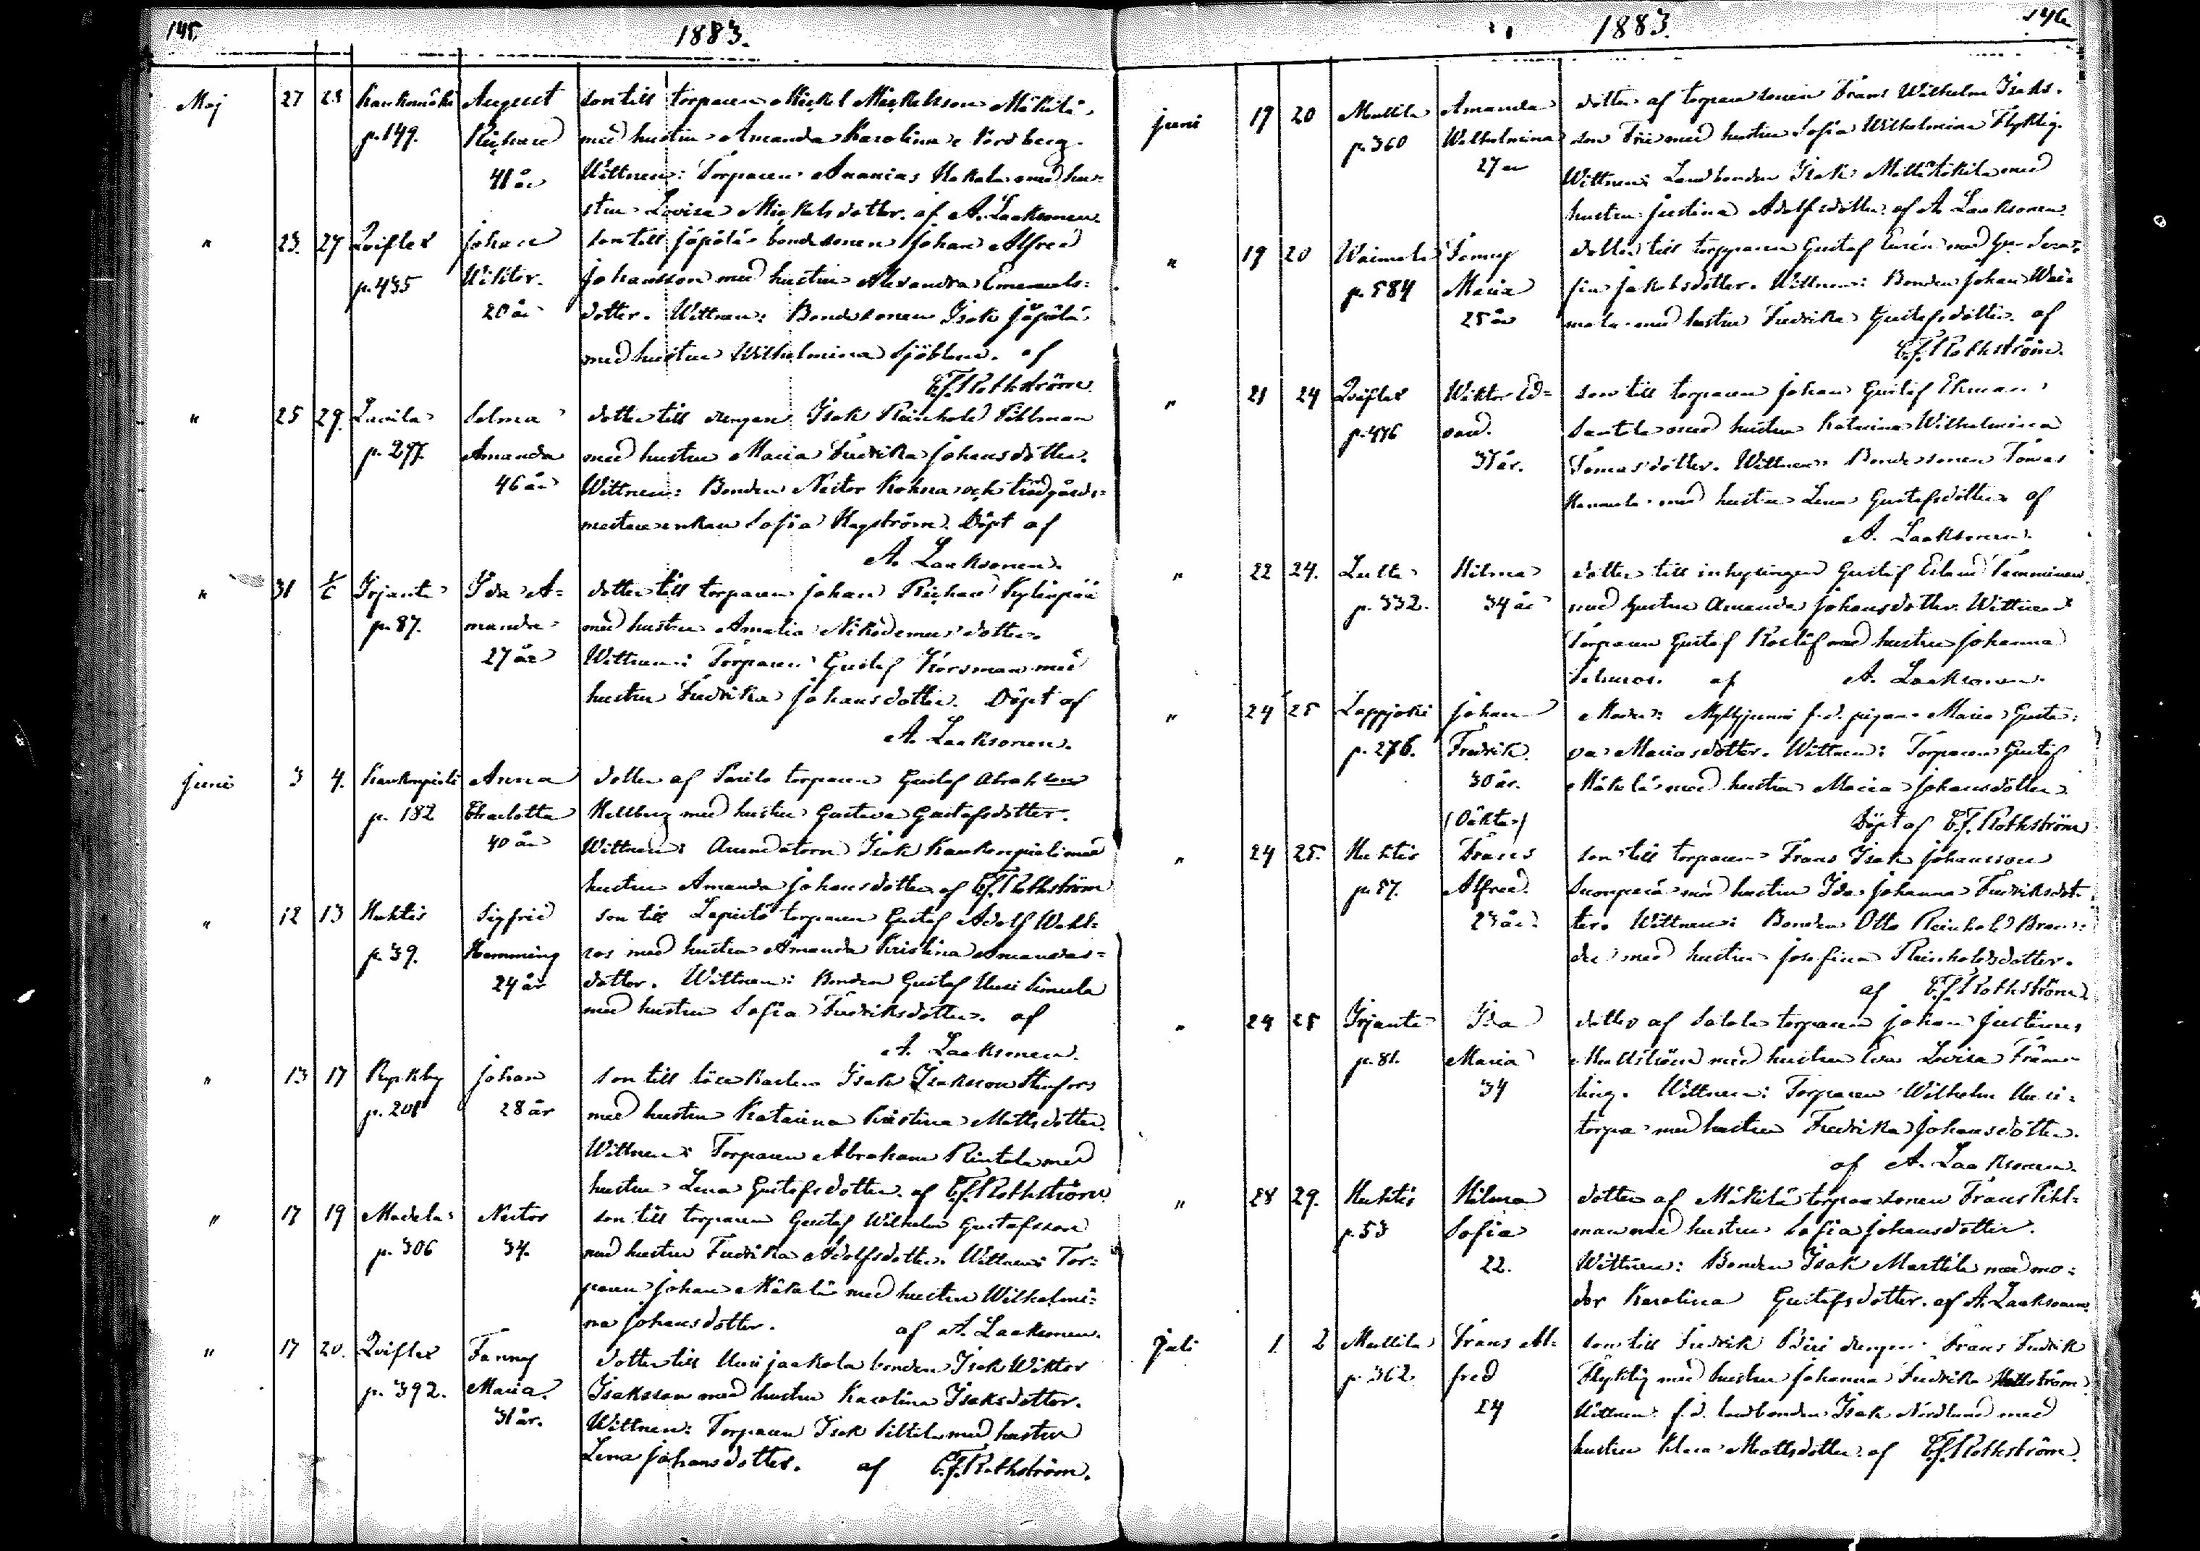 145.
1883.
Maj 27 28 Kaukomäki August son till torparen Mickel Mickelsson Mäkilä
p. 149. Richard med hustru Amanda Karolina Nordberg.
41 år Wittnen: Torparen Ananias Hakala med hu-
stru Lovisa Mickelsdotter. af A. Laaksonen.
" 23. 27 Qviflax Johan son till Jöpölä bondesonen Johan Alfred
p. 435 Wiktor. Johansson med hustru Alexandra Emanuels-
20 år dotter. Wittnen: Bondesonen Isak Jöpölä
med hustru Wilhelmina Sjöblom. af
E.f. Rothström
" 25 29. Selma dotter till drengen Isak Reinhold Pihlman
p. 297. Amanda med hustru Maria Fredrika Johansdotter.
46 år Wittnen: Bonden Nestor Kohna och trädgårds-
mestare enkan Sofia Hagström. Döpt af
A. Laaksonen.
" 31 1/6 Irjanta Ida A- dotter till torparen Johan Richard
p. 87. manda med hustru Amalia Nikodemus dotter.
27 år Wittnen: Torparen Gustaf Korsman med
hustru Fredrika Johansdotter. Döpt af
A. Laaksonen.
Juni 3 4. Kaukonpieli Anna dotter af torparen Gustaf Abrahamsson
p. 182 Charlotta Hellberg med hustru Gustava Gustafsdotter.
40 år Wittnen: Arrendatorn Isak Kaukonpieli med
hustru Amanda Johansdotter af E.f. Rothström
" 12 13 Huhtis Sigfrid son till torparen Gustaf Adolf Wahl-
p. 39. Hemming ros med hustru Amanda Kristina Amandas-
24 år dotter. Wittnen: Bonden Gustaf Uusi Simula
med hustru Sofia Fredriksdotter. af
A. Laaksonen.
" 13 17 Kyrkby Johan son till lösekarlen Isak Isaksson Stenfors
p. 208 28 år med hustru Katarina Kristina Mattsdotter.
Wittnen: Torparen Abraham Rintala med
hustru Lena Gustafsdotter. af E.f. Rothström
" 17 19 Nestor son till torparen Gustaf Wilhelm Gustafsson
p. 306 34. med hustru Fredrika Adolfsdotter. Wittnen: Tor-
paren Johan Mäkälä med hustru Wilhelmi-
na Johansdotter. af A. Laaksonen.
" 17 20. Qviflax Fanny dotter till Uusi jaakola bonden Isak Wiktor
p. 392. Maria. Isaksson med hustru Karolina Isaksdotter.
31 år. Wittnen: Torparen Isak Siltila med hustru
Lena Johansdotter. af E.f. Rothström.
146
1883.
Juni 19 20 Mullila Amanda dotter af torparesonen Frans Wilhelm Isaks-
p. 360 Wilhelmina son Frii med hustru Sofia Wilhelmina Flyktig.
27 år Wittnen: Landbonden Isak Mattätäkilä med
hustru Justina Adolfsdotter. af A. Laaksonen.
" 19 20 Waimala Fanny dotter till torparen Gustaf Eurén med hu. Sera-
p. 584 Maria fia Jakobsdotter. Wittnen: Bonden Johan Wai-
25 år mala med hustru Fredrika Gustafsdotter. af
E.f. Rothström.
" 21 24 Qviflax Wiktor Ed- son till torparen Johan Gustaf Ekman
p. 446 vard. Santala med hustru Katarina Wilhelmina
31 år. Tomasdotter. Wittnen: Bondesonen Tomas
Hannula med hustru Lena Gustafsdotter. af
A. Laaksonen.
" 22 24. Lutta Hilma dotter till inhysingen Gustaf Erland Tamminen
p. 332. 34 år med hustru Amanda Johansdotter. Wittnen
Torparen Gustaf Roslöf med hustru Johanna
af A. Laaksonen.
" 24 25 Lappjoki Johan Moder: Myllyjunni f.d. pigan Maria Gusta-
p. 276. Fredrik. va Mariasdotter. Wittnen: Torparen Gustaf
30 år. Mäkälä med hustru Maria Johansdotter.
(Oäkta) Döpt af E.f. Rothström
" 24 25. Huhtis Frans son till torparen Frans Isak Johansson
p. 57. Alfred. Suonperä med hustru Ida Johanna Fredriksdot-
23 år. ter. Wittnen: Bonden Otto Reinhold Bran-
der med hustru Josefina Reinholdsdotter.
af E.f. Rothström.
" 24 25 Irjanta Ida dotter af Satola torparen Johan Justinus
p. 81. Maria Mallström med hustru Eva Lovisa Främ-
34 ling. Wittnen: Torparen Wilhelm Uusi-
torpa med hustru Fredrika Johansdotter.
af A. Laaksonen.
" 28 29. Huhtis Hilma dotter af Mäkilä torparesonen Frans Pihl-
p. 53 Sofia man med hustru Sofia Johansdotter.
22. Wittnen: Bonden Isak Marttila med mo-
der Karolina Gustafsdotter. af A. Laaksonen
Juli 1. 2 Mullila Frans Al- son till Fredrik Piiri drengen Frans Fredrik
p. 362. fred Flyktig med hustru Johanna Fredrika Hellström
24 Wittnen: f.d. landbonden Isak Nordlund med
hustru Klara Mattsdotter. af E.f. Rothström.